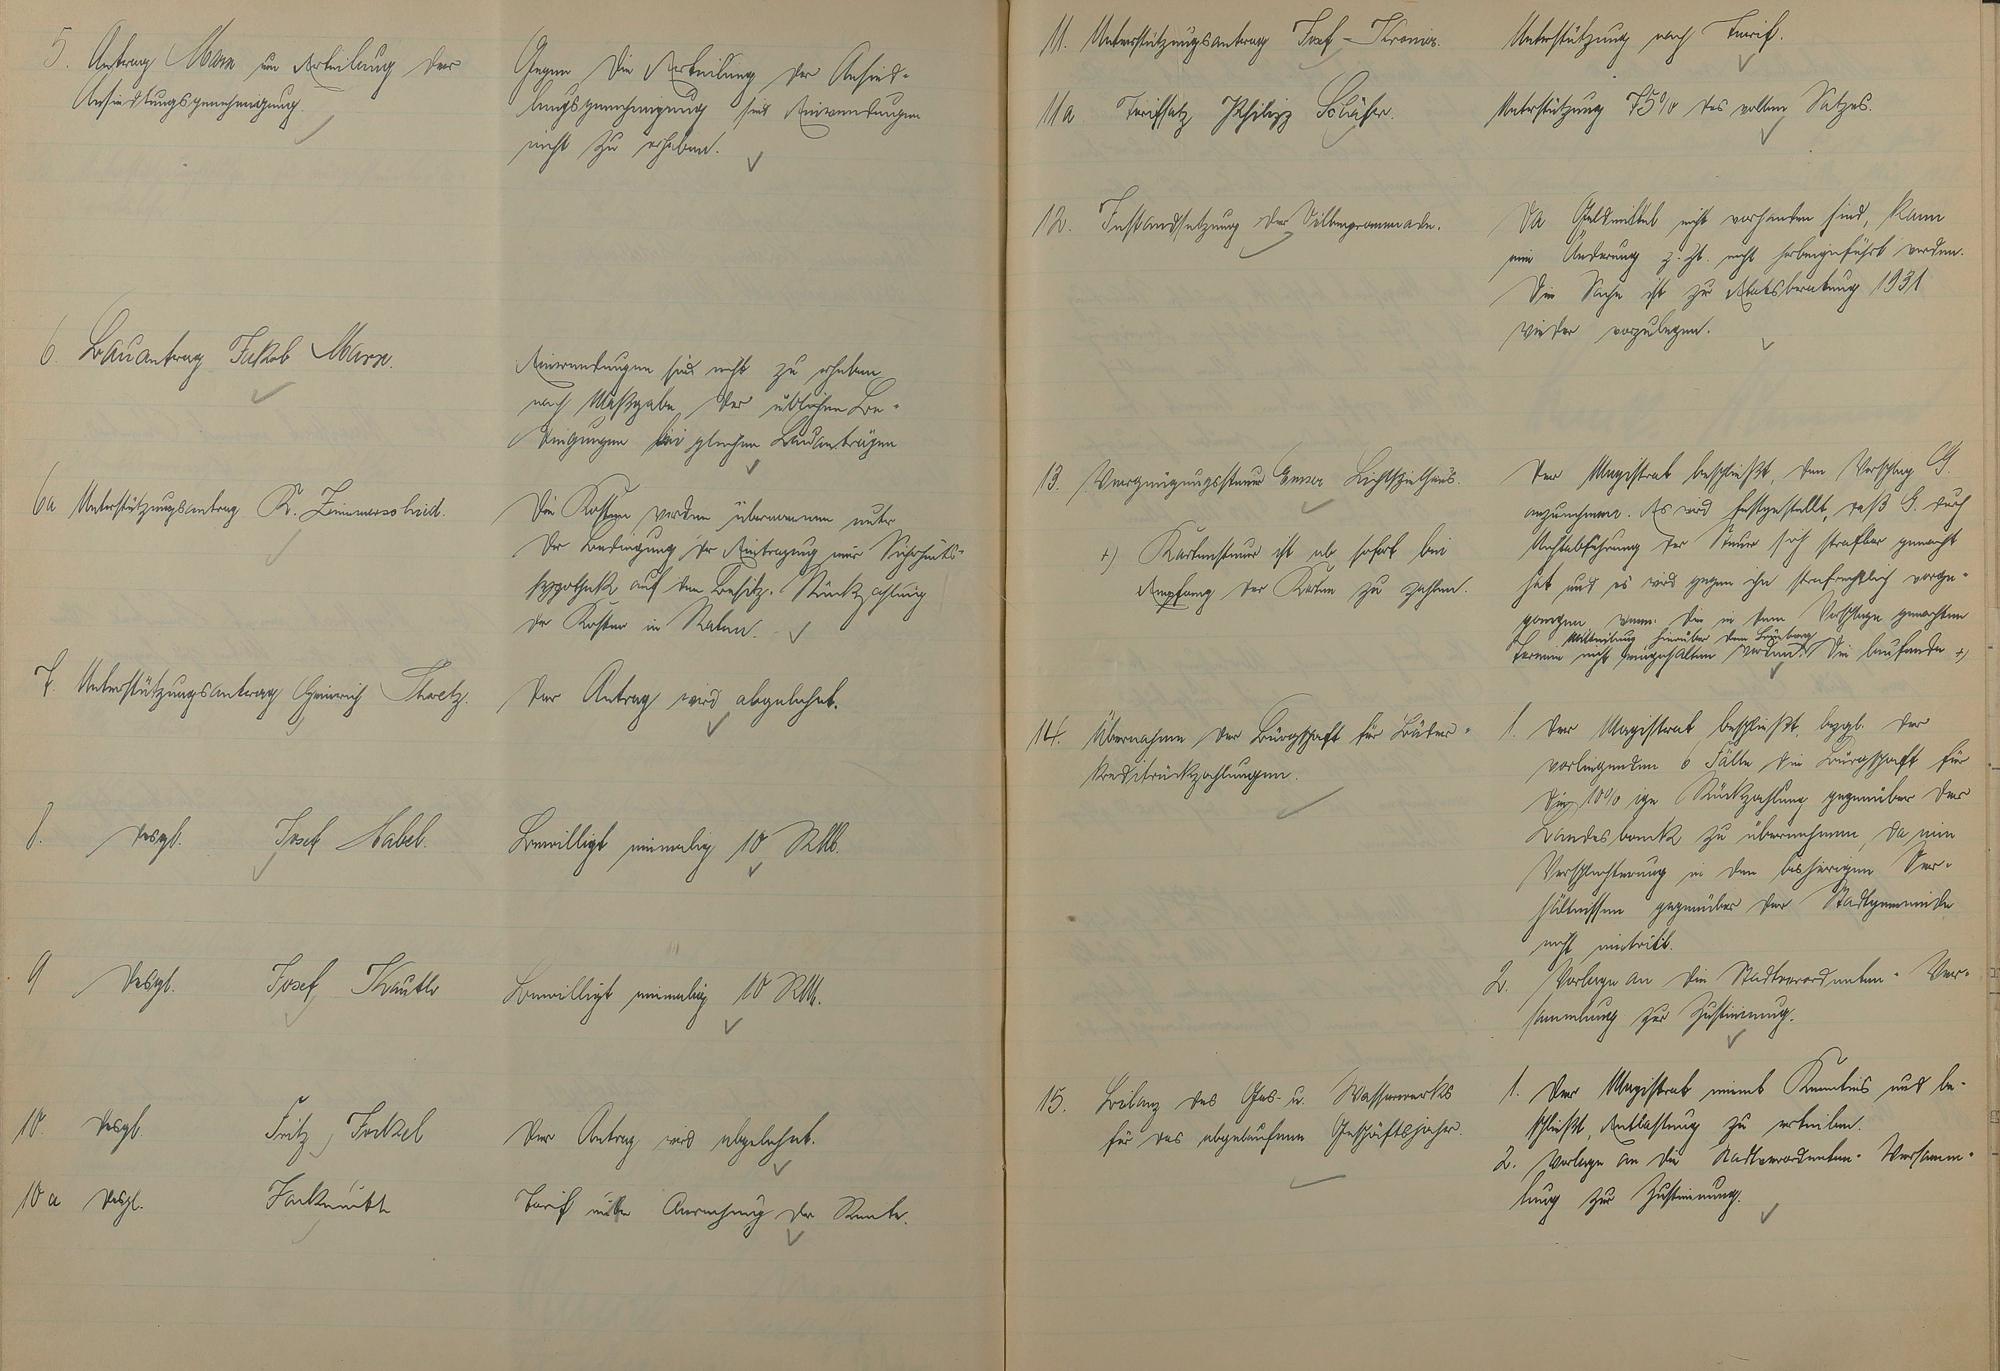 5. Antrag Marx um Erteilung der
Ansiedlungsgenehmigung.
Gegen die Erteilung der Ansied-
lungsgenehmigung sind Einwendungen
nicht zu erheben.
6. Bauantrag Jakob Marx.
Einwendungen sind nicht zu erheben
nach Maßgabe der üblichen Be-
dingungen bei gleichen Bauanträgen
6a Unterstützungsantrag K. Zimmerschied.
Die Kosten werden übernommen unter
der Bedingung der Eintragung einer Sicherheits-
hypothek auf den Besitz. Rückzahlung
der Kosten in Raten.
7. Unterstützungsantrag Heinrich
Der Antrag wird abgelehnt.
8. desgl. Josef Habel.
Bewilligt einmalig 10 RM.
9 desgl. Josef
Bewilligt einmalig 10 RM.
10. desgl. Fritz
Der Antrag wird abgelehnt.
10a desgl.
Tarif unter Anrechnung der Rente.
11. Unterstützungsantrag Josef
Unterstützung nach Tarif.
11a Tarifsatz Philipp Schäfer.
Unterstützung 75% des vollen Satzes.
12. Instandsetzung der Silberpromenade.
Da Geldmittel nicht vorhanden sind, kann
eine Änderung z. Zt. nicht herbeigeführt werden.
Die Sache ist zur Etatsberatung 1931
wieder vorzulegen.
13. Vergnügungssteuer Emser Lichtspielhaus.
+) Kartensteuer ist ab sofort bei
Empfang der Karten zu zahlen.
Der Magistrat beschließt, den Vorschlag G.
anzunehmen. Es wird festgestellt, daß G. durch
Nichtabführung der Steuer sich strafbar gemacht
hat und es wird gegen ihn strafrechtlich vorge-
gangen, wenn die in dem Vorschlage gemachten
Mitteilung hierüber dem
Termine nicht eingehalten werden. Die laufende +)
14. Übernahme der Bürgschaft für Bäder-
kreditrückzahlungen.
1. Der Magistrat beschließt, bezgl. der
vorliegenden 6 Fälle die Bürgschaft für
die 10%ige Rückzahlung gegenüber der
Landesbank zu übernehmen, da eine
Verschlechterung in den bisherigen Ver-
hältnissen gegenüber der Stadtgemeinde
nicht eintritt.
2. Vorlage an die Stadtverordneten-Ver-
sammlung zur Zustimmung.
15. Bilanz des Gas- u. Wasserwerks
für das abgelaufene Geschäftsjahr.
1. Der Magistrat nimmt Kenntnis und be-
schließt, Entlastung zu erteilen.
2. Vorlage an die Stadtverordneten-Versamm-
lung zur Zustimmung.